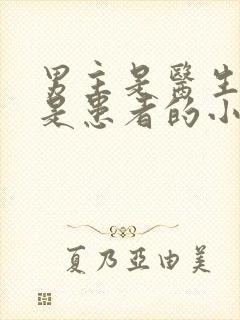 男主是醫生
是患者的小
夏乃亞由美